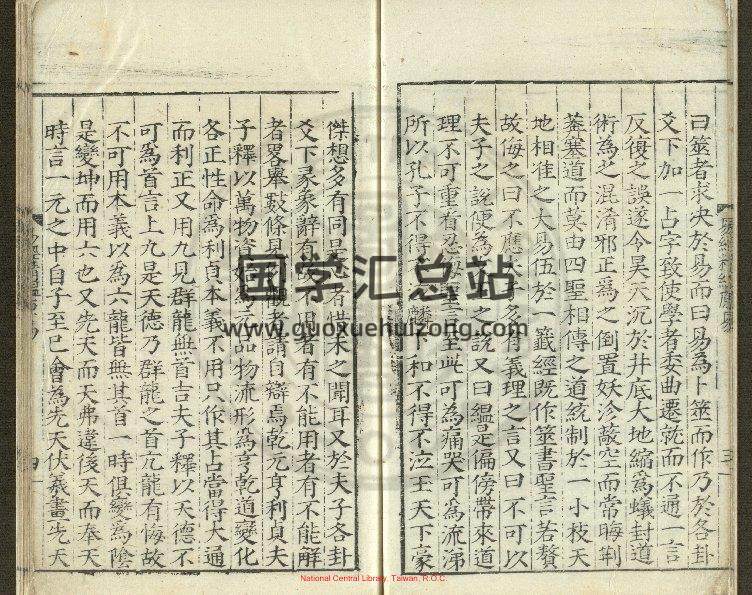 曰筮者求决於易而曰易為卜筮而作乃於各卦
爻下加一占字致使學者委曲遷就而不通一言
反復之誤遂令昊天沉於井底大地縮為蟻封道
術為之混淆邪正為之倒置妖沴蔽空而常晦荆
蓁塞道而莫由四聖相傳之道統制於一小枝天
地相准之大易伍於一籤經既作筮書聖言若贅
故侮之曰不應夫子多有義理之言又曰不可以
夫子之說便為之說又曰縕是偏傍帶來道
理不可重看忍聖言至此可為痛哭可為流涕
所以孔子不得不麟卞和不得不泣王天下豪
傑想多有同是惜未之聞耳又於夫子各卦
爻下彖象辭有不用者有不能用者有不能解
者畧舉數條見觀者請自辯焉乾元亨利貞夫
子釋以萬物資始為元品物流形為亨乾道變化
各正性命為利貞本義不用只作其占當得大通
而利正又用九見群龍無首吉夫子釋以天德不
可為首言上九是天德乃群龍之首亢龍有悔故
不可用本義以為六龍皆無其首一時俱變為陰
是變坤而用六也又先天而天弗違後天而奉天
時言一元之中自子至巳會為先天伏羲畫先天
三
四
国学汇总站
www.guoxuehuizong.com
National Central Library, Taiwan, R.O.C.